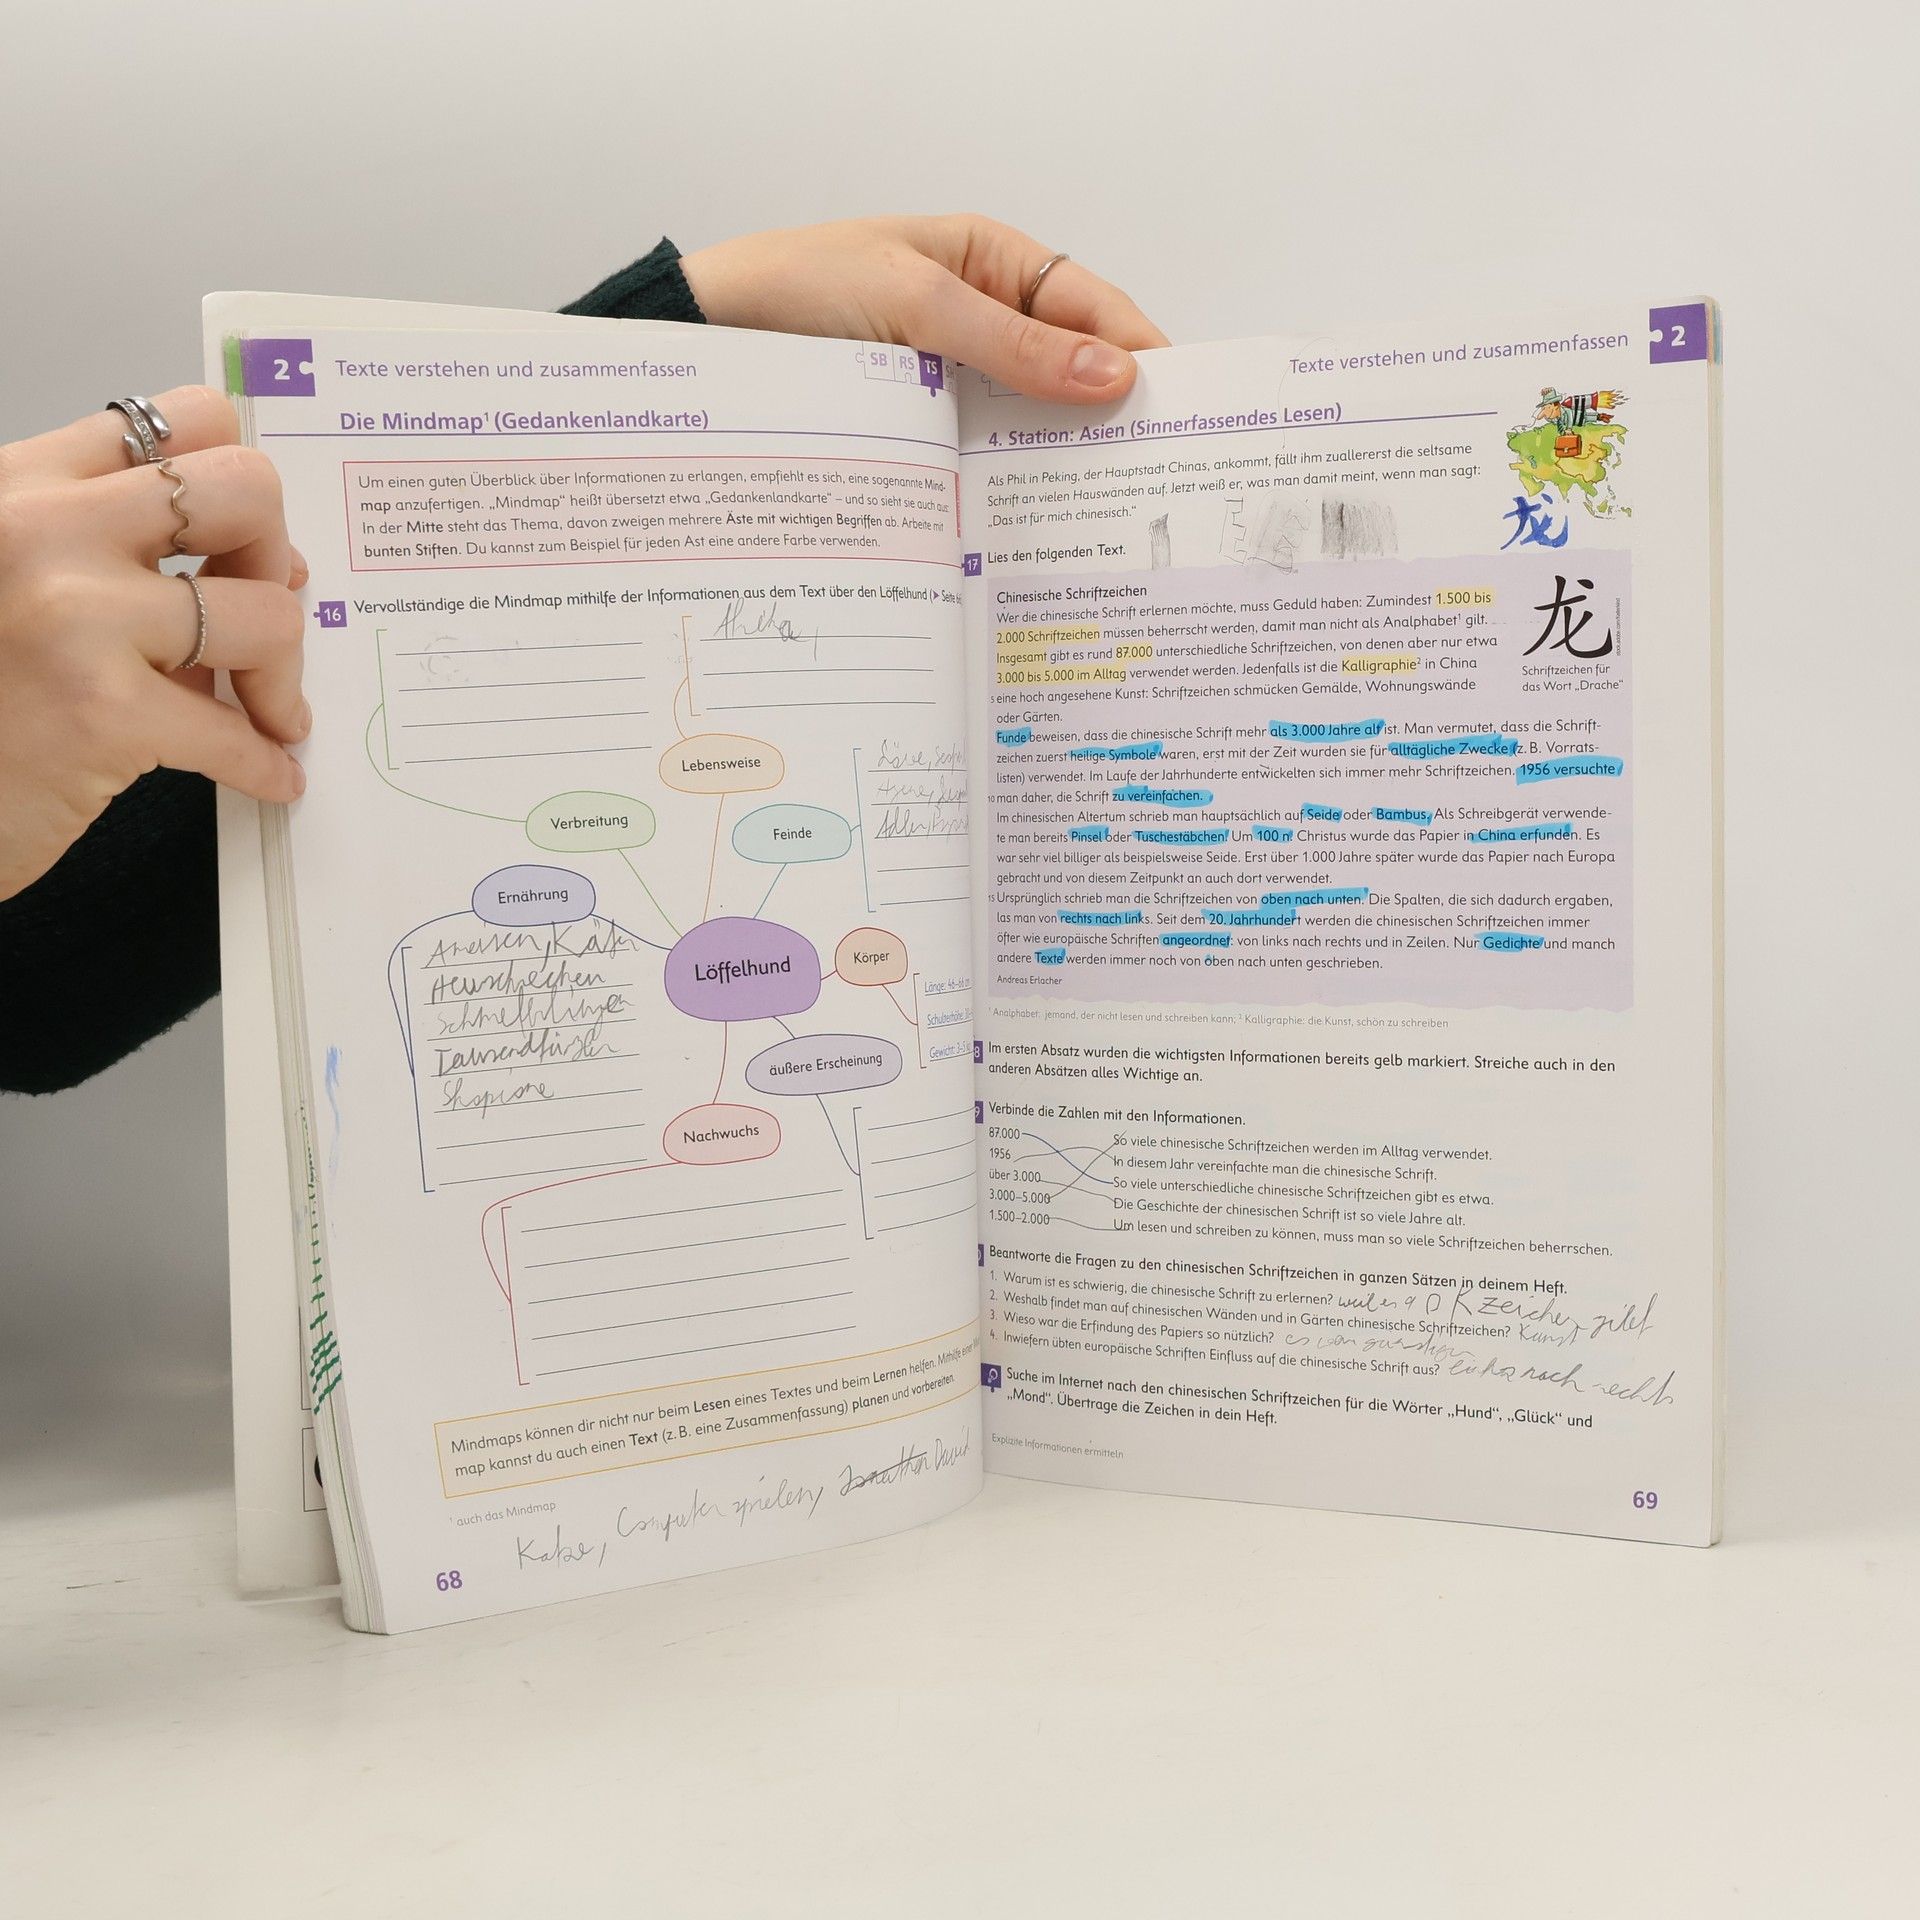 2
Texte verstehen und zusammenfassen
SB RS TS
Die Mindmap¹ (Gedankenlandkarte)
Um einen guten Überblick über Informationen zu erlangen, empfiehlt es sich, eine sogenannte Mind-
map anzufertigen. „Mindmap“ heißt übersetzt etwa „Gedankenlandkarte“ – und so sieht sie auch aus:
In der Mitte steht das Thema, davon zweigen mehrere Äste mit wichtigen Begriffen ab. Arbeite mit
bunten Stiften. Du kannst zum Beispiel für jeden Ast eine andere Farbe verwenden.
16 Vervollständige die Mindmap mithilfe der Informationen aus dem Text über den Löffelhund (▶ Seite
Lebensweise
Verbreitung
Feinde
Adler,
Ernährung
Ameisen, Käfer
Heuschrecken
Schmetterlinge
Tausendfüßler
Skopione
Löffelhund
Körper
Länge: 46–66
Schulterhöhe:
Gewicht: 3–5
äußere Erscheinung
Nachwuchs
Mindmaps können dir nicht nur beim Lesen eines Textes und beim Lernen helfen. Mithilfe einer
map kannst du auch einen Text (z. B. eine Zusammenfassung) planen und vorbereiten.
¹ auch das Mindmap
Katze, Computer spielen, Jonathan David
68
Texte verstehen und zusammenfassen
2
4. Station: Asien (Sinnerfassendes Lesen)
Als Phil in Peking, der Hauptstadt Chinas, ankommt, fällt ihm zuallererst die seltsame
Schrift an vielen Hauswänden auf. Jetzt weiß er, was man damit meint, wenn man sagt:
„Das ist für mich chinesisch.“
龙
17 Lies den folgenden Text.
Chinesische Schriftzeichen
Wer die chinesische Schrift erlernen möchte, muss Geduld haben: Zumindest 1.500 bis
2.000 Schriftzeichen müssen beherrscht werden, damit man nicht als Analphabet¹ gilt.
Insgesamt gibt es rund 87.000 unterschiedliche Schriftzeichen, von denen aber nur etwa
3.000 bis 5.000 im Alltag verwendet werden. Jedenfalls ist die Kalligraphie² in China
5 eine hoch angesehene Kunst: Schriftzeichen schmücken Gemälde, Wohnungswände
oder Gärten.
龙
Schriftzeichen für
das Wort „Drache“
Funde beweisen, dass die chinesische Schrift mehr als 3.000 Jahre alt ist. Man vermutet, dass die Schrift-
zeichen zuerst heilige Symbole waren, erst mit der Zeit wurden sie für alltägliche Zwecke (z. B. Vorrats-
listen) verwendet. Im Laufe der Jahrhunderte entwickelten sich immer mehr Schriftzeichen. 1956 versuchte
10 man daher, die Schrift zu vereinfachen.
Im chinesischen Altertum schrieb man hauptsächlich auf Seide oder Bambus. Als Schreibgerät verwende-
te man bereits Pinsel oder Tuschestäbchen! Um 100 n. Christus wurde das Papier in China erfunden. Es
war sehr viel billiger als beispielsweise Seide. Erst über 1.000 Jahre später wurde das Papier nach Europa
gebracht und von diesem Zeitpunkt an auch dort verwendet.
15 Ursprünglich schrieb man die Schriftzeichen von oben nach unten. Die Spalten, die sich dadurch ergaben,
las man von rechts nach links. Seit dem 20. Jahrhundert werden die chinesischen Schriftzeichen immer
öfter wie europäische Schriften angeordnet: von links nach rechts und in Zeilen. Nur Gedichte und manch
andere Texte werden immer noch von oben nach unten geschrieben.
Andreas Erlacher
¹ Analphabet: jemand, der nicht lesen und schreiben kann; ² Kalligraphie: die Kunst, schön zu schreiben
8 Im ersten Absatz wurden die wichtigsten Informationen bereits gelb markiert. Streiche auch in den
anderen Absätzen alles Wichtige an.
9 Verbinde die Zahlen mit den Informationen.
87.000 So viele chinesische Schriftzeichen werden im Alltag verwendet.
1956 In diesem Jahr vereinfachte man die chinesische Schrift.
über 3.000 So viele unterschiedliche chinesische Schriftzeichen gibt es etwa.
3.000–5.000 Die Geschichte der chinesischen Schrift ist so viele Jahre alt.
1.500–2.000 Um lesen und schreiben zu können, muss man so viele Schriftzeichen beherrschen.
Beantworte die Fragen zu den chinesischen Schriftzeichen in ganzen Sätzen in deinem Heft.
1. Warum ist es schwierig, die chinesische Schrift zu erlernen? weil es zeichen gibt
2. Weshalb findet man auf chinesischen Wänden und in Gärten chinesische Schriftzeichen? Kunst
3. Wieso war die Erfindung des Papiers so nützlich? es war
4. Inwiefern übten europäische Schriften Einfluss auf die chinesische Schrift aus? links nach rechts
Suche im Internet nach den chinesischen Schriftzeichen für die Wörter „Hund“, „Glück“ und
„Mond“. Übertrage die Zeichen in dein Heft.
Explizite Informationen ermitteln
69